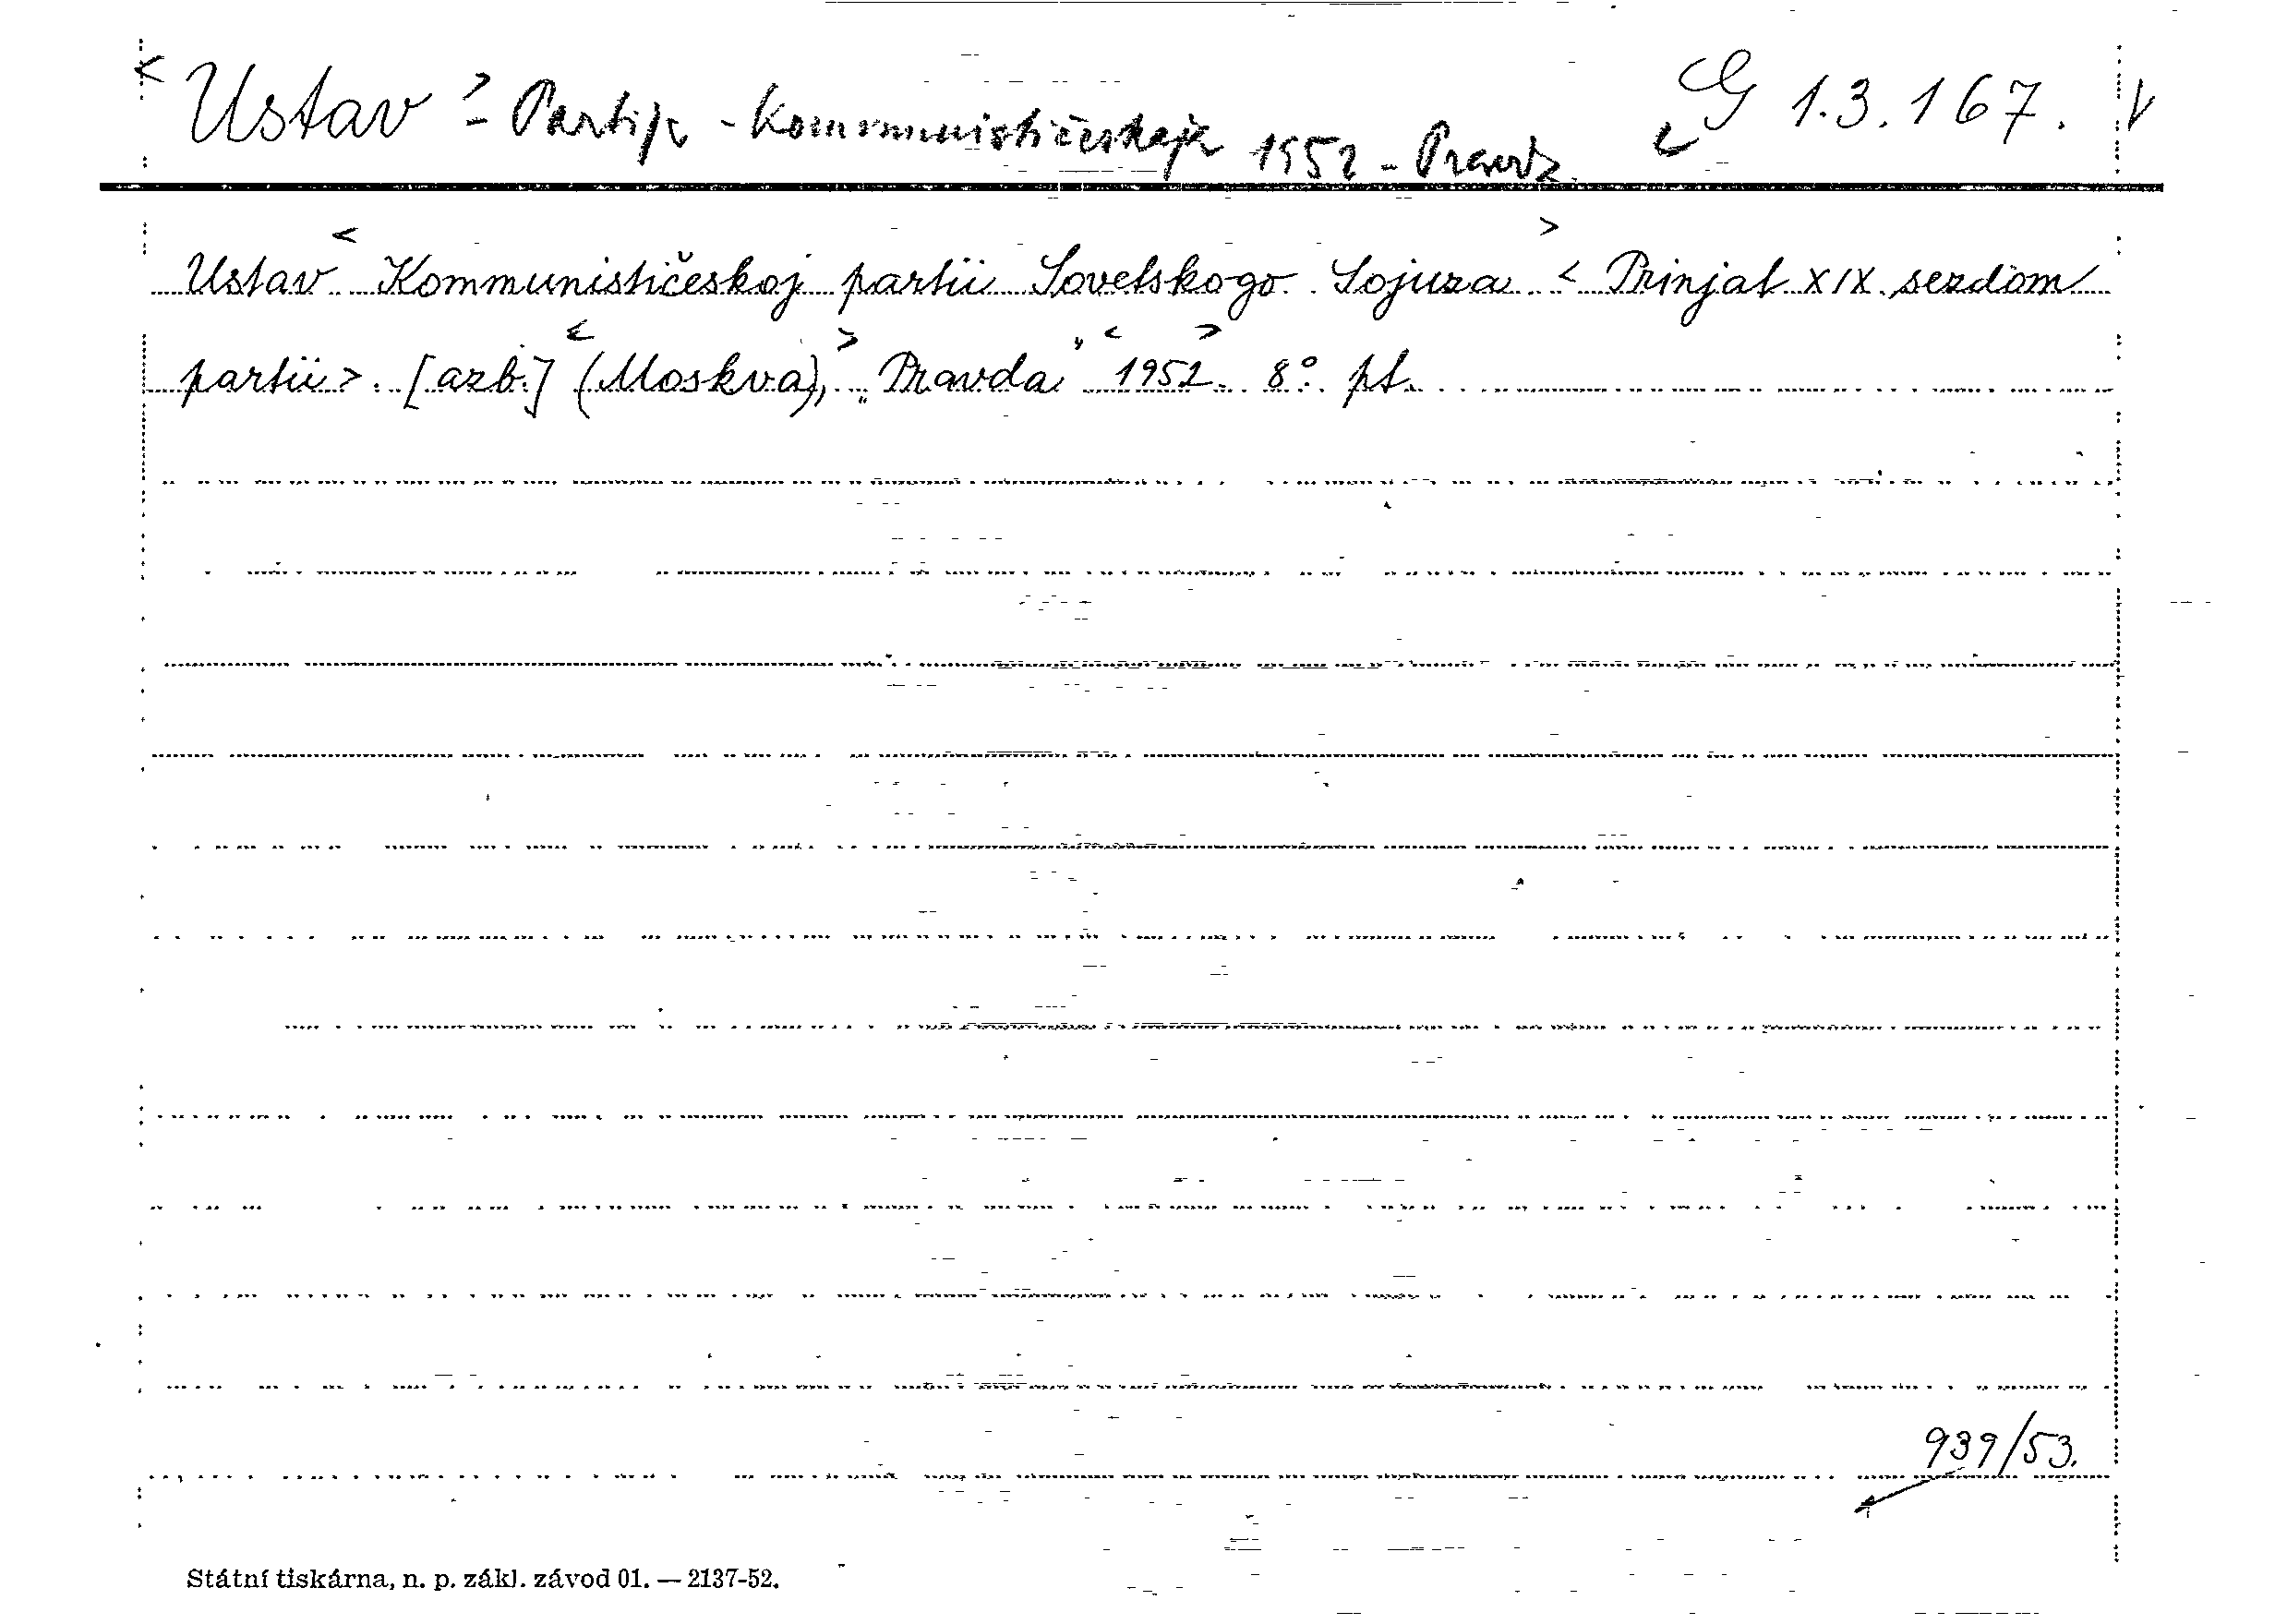 < Ustav > - Partija - Kommunističeskaja 1952 - Pravda. G 1.3.167.
Ustav < Kommunističeskoj partii Sovetskogo Sojuza > < Prinjat XIX. sezdom
partii >. [azb.] < (Moskva), > „Pravda" < 1952. > 8°. pt.
939/53.
Státní tiskárna, n. p. zákl. závod 01. — 2137-52.